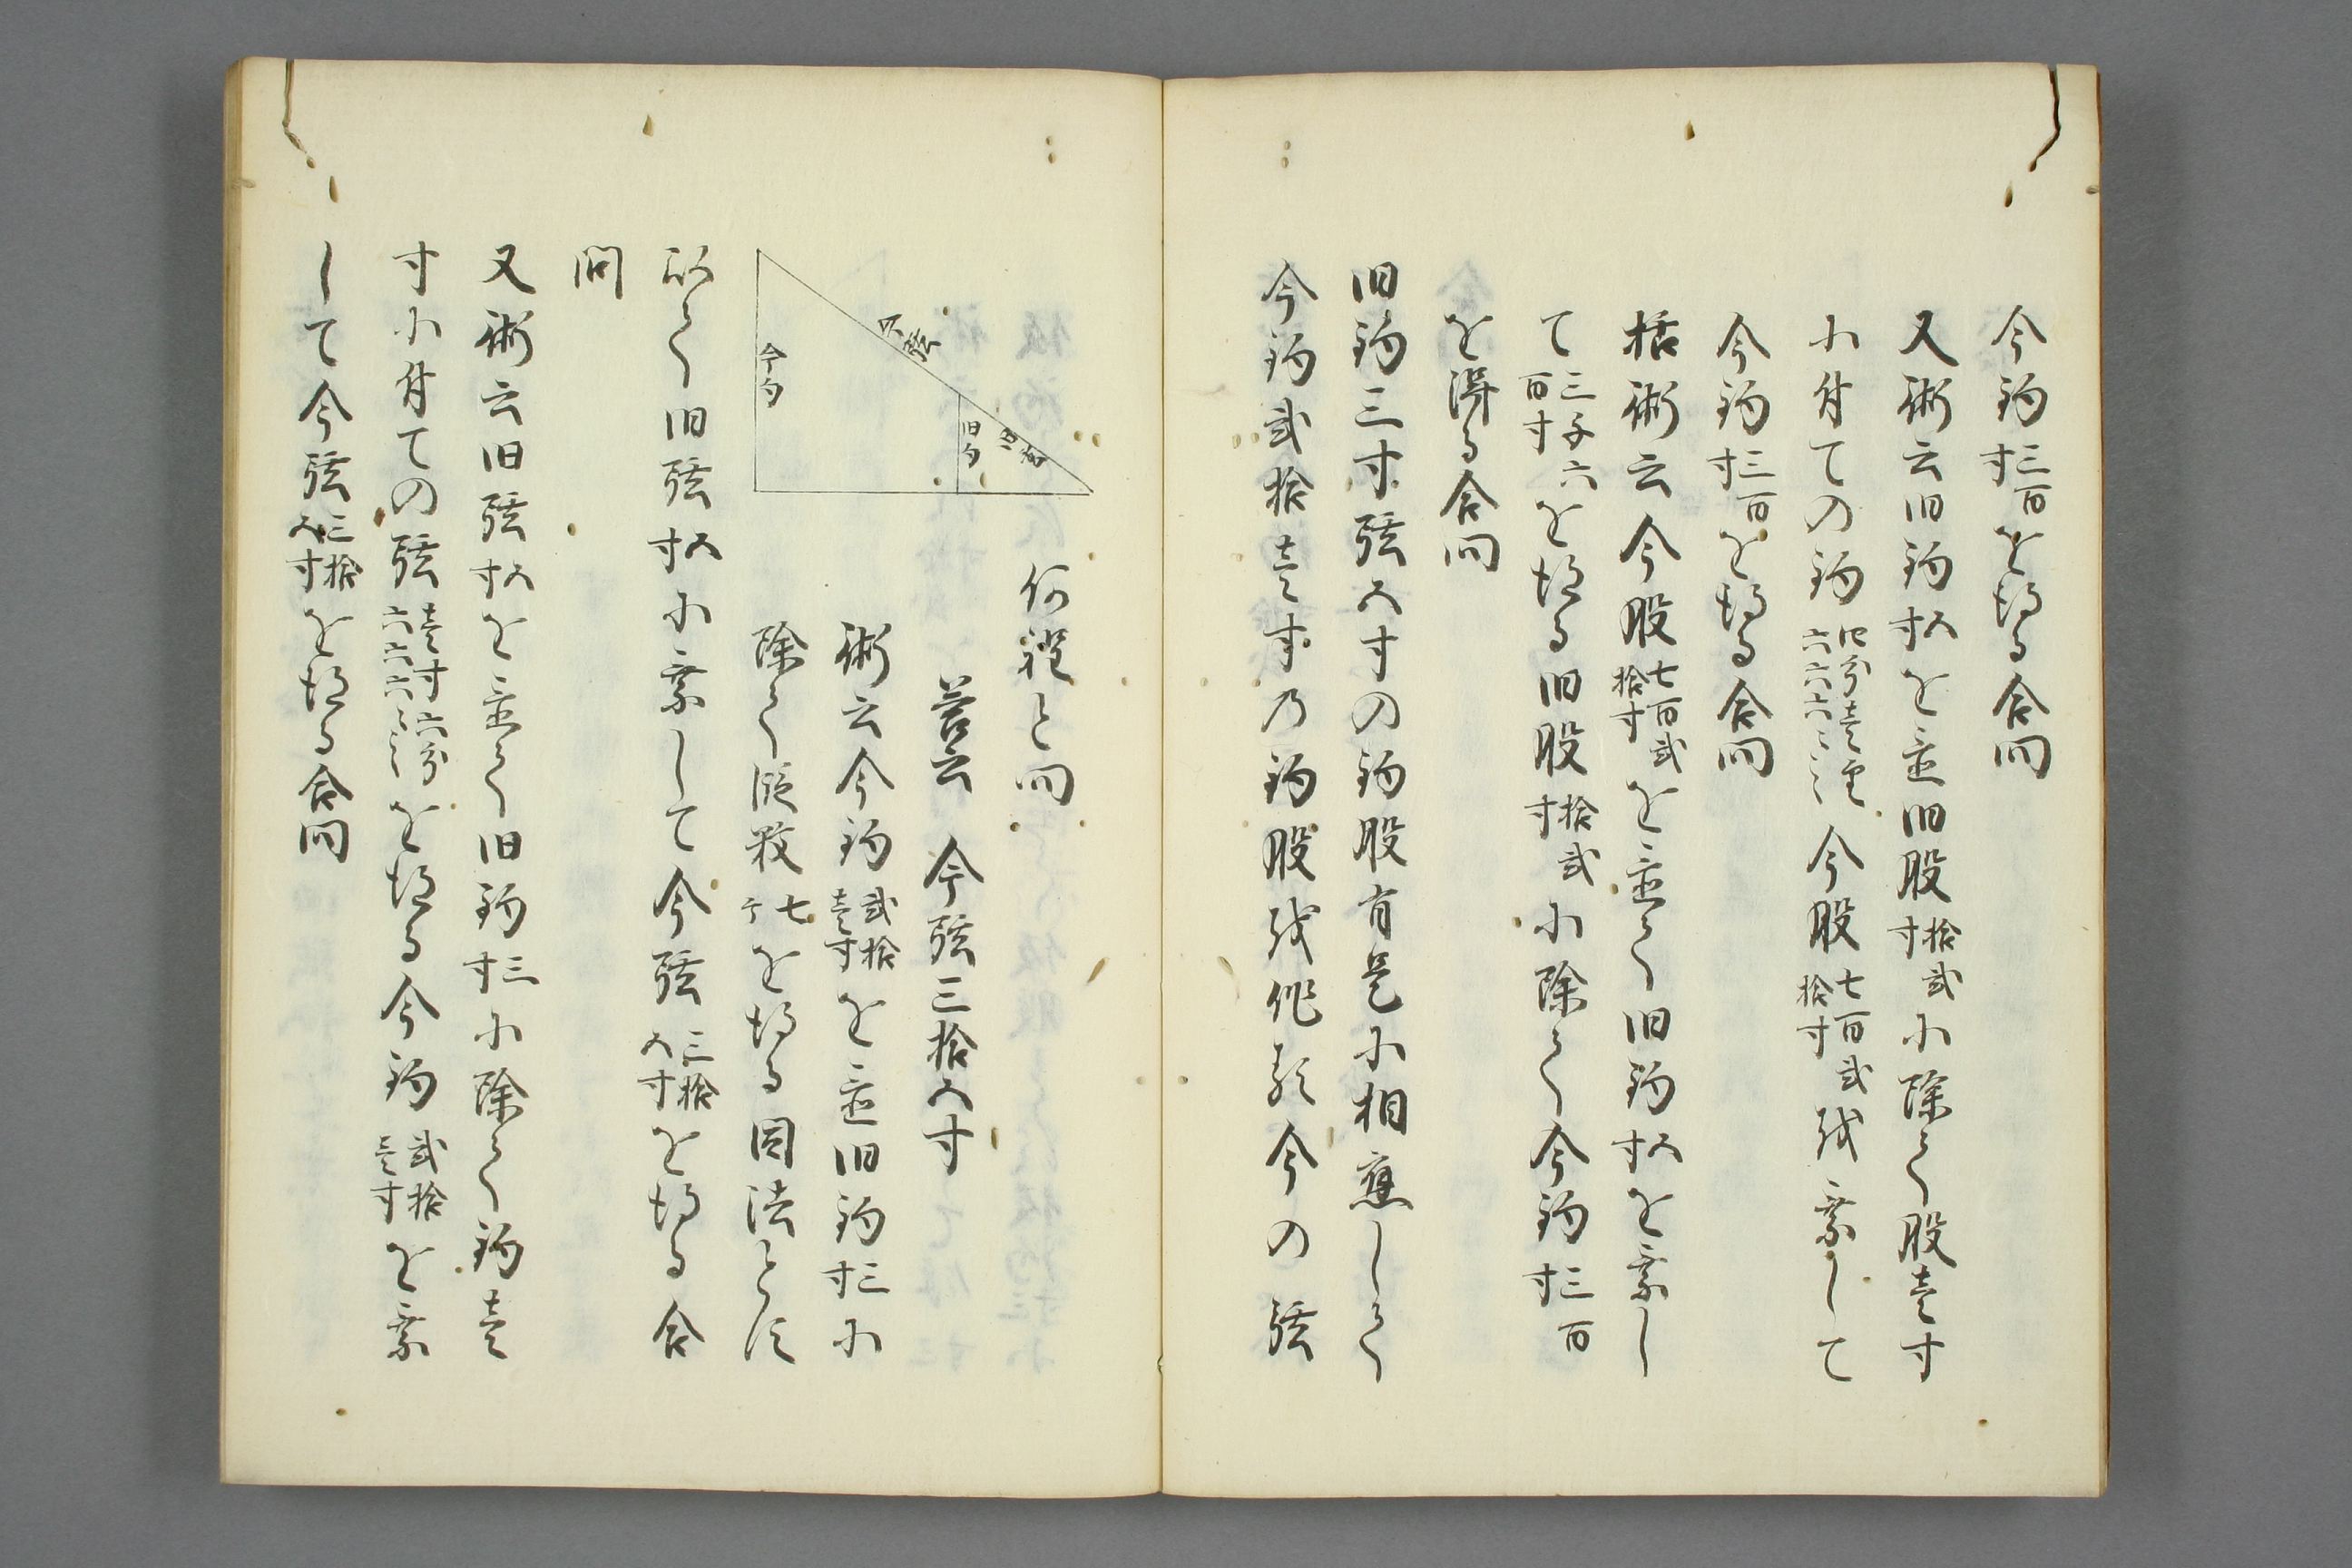 今鈎三百寸を得る合問
又術云旧鈎五寸を置旧股拾弐寸に除て股壱寸
に付ての鈎四分壱厘六六六ミミ今股七百弐拾寸を乗して
今鈎三百寸を得る合問
括術云今股七百弐拾寸を置て旧鈎五寸を乗し
て三千六百寸を得る旧股拾弐寸に除て今鈎三百寸
を得る合問
旧鈎三寸弦五寸の鈎股有是に相應して
今鈎弐拾壱寸乃鈎股を作る今の弦
何程と問
答云 今弦三拾五寸
術云今鈎弐拾壱寸を置旧鈎三寸に
除て段数七寸を得る因法とす
以て旧弦五寸に乗して今弦三拾五寸を得る合
問
又術云旧弦五寸を置て旧鈎三寸に除て鈎壱
寸に付ての弦壱寸六分六六六ミミを得る今鈎弐拾壱寸を乗
して今弦三拾五寸を得る合問
今弦
今勾
旧勾
旧玄